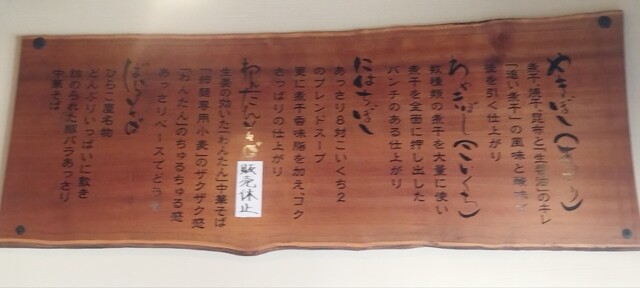 やきぼし(あっさり)
煮干 焼干 昆布と「生醤油」のキレ
「追い煮干」の風味と酸味が
後を引く仕上がり
わかぎぼし(こいくち)
数種類の煮干を大量に使い
煮干を全面に押し出した
パンチのある仕上がり
にはちぼし
あっさり8対こいくち2
のブレンドスープ
更に煮干香味脂を加え、コク
さっぱりの仕上がり
わんたんそば
販売休止
生姜の効いた「わんたん」中華そば
専用小麦」のザクザク感
「わんたん」のちゅるちゅる感
あっさりベースでどうぞ
ばらそば
ひらこ屋名物
どんぶりいっぱいに敷き
詰められた豚バラあっさり
中華そば